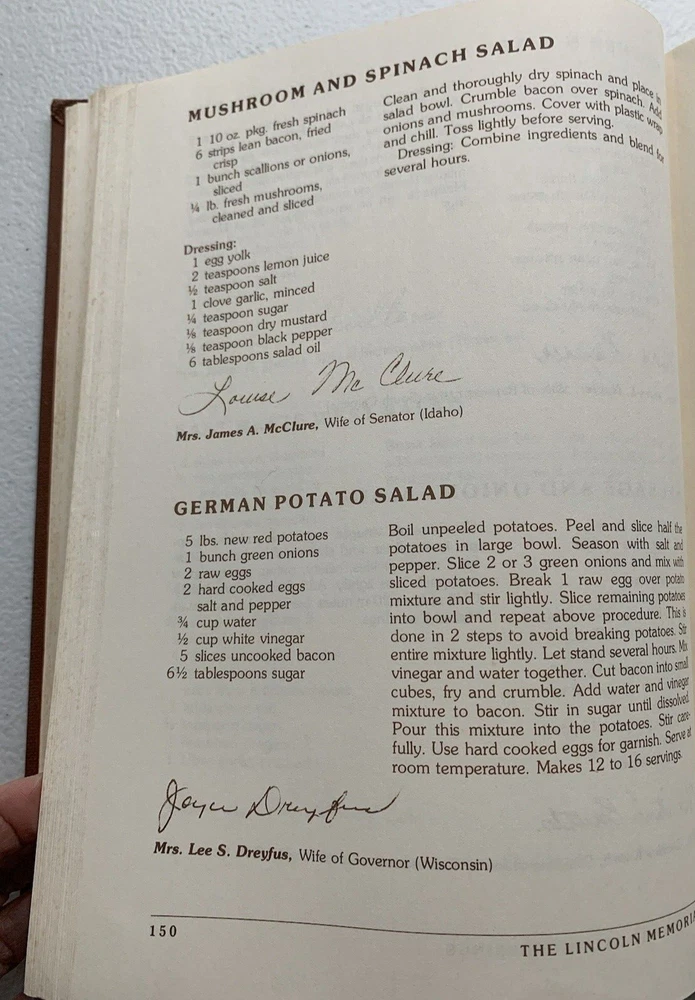 MUSHROOM AND SPINACH SALAD
1 10 oz. pkg. fresh spinach
6 strips lean bacon, fried
crisp
1 bunch scallions or onions,
sliced
¼ lb. fresh mushrooms,
cleaned and sliced
Dressing:
1 egg yolk
2 teaspoons lemon juice
½ teaspoon salt
1 clove garlic, minced
¼ teaspoon sugar
⅛ teaspoon dry mustard
⅛ teaspoon black pepper
6 tablespoons salad oil
Clean and thoroughly dry spinach and place in
salad bowl. Crumble bacon over spinach. Add
onions and mushrooms. Cover with plastic wrap
and chill. Toss lightly before serving.
Dressing: Combine ingredients and blend for
several hours.
Louise Mc Clure
Mrs. James A. McClure, Wife of Senator (Idaho)
GERMAN POTATO SALAD
5 lbs. new red potatoes
1 bunch green onions
2 raw eggs
2 hard cooked eggs
salt and pepper
¾ cup water
½ cup white vinegar
5 slices uncooked bacon
6½ tablespoons sugar
Boil unpeeled potatoes. Peel and slice half the
potatoes in large bowl. Season with salt and
pepper. Slice 2 or 3 green onions and mix with
sliced potatoes. Break 1 raw egg over potato
mixture and stir lightly. Slice remaining potatoes
into bowl and repeat above procedure. This is
done in 2 steps to avoid breaking potatoes. Stir
entire mixture lightly. Let stand several hours. Mix
vinegar and water together. Cut bacon into small
cubes, fry and crumble. Add water and vinegar
mixture to bacon. Stir in sugar until dissolved.
Pour this mixture into the potatoes. Stir care-
fully. Use hard cooked eggs for garnish. Serve at
room temperature. Makes 12 to 16 servings.
Joyce Dreyfus
Mrs. Lee S. Dreyfus, Wife of Governor (Wisconsin)
150
THE LINCOLN MEMORIA